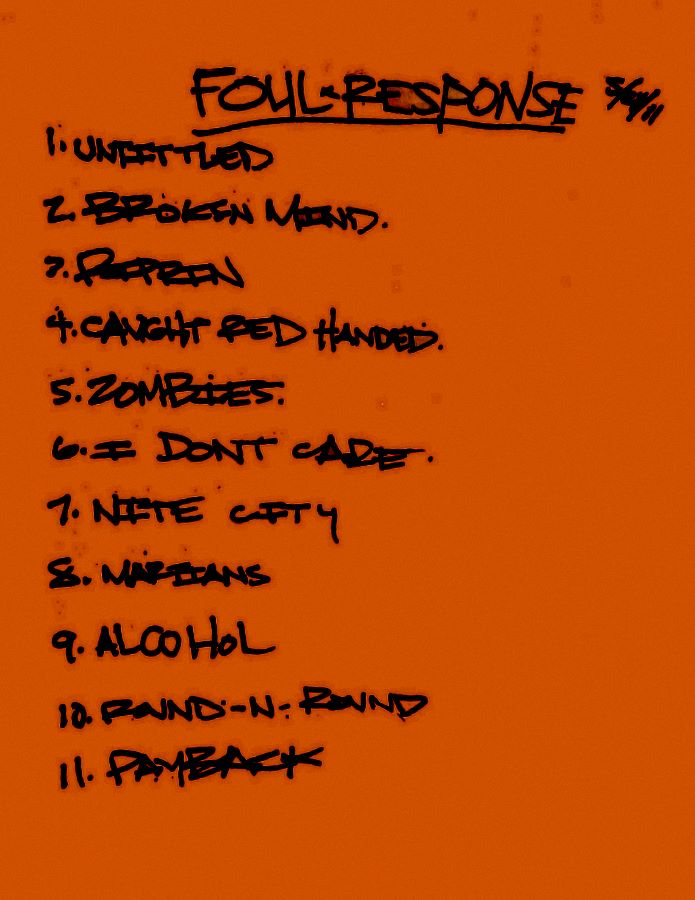 FOUL-RESPONSE
1. UNTITLED
2. BROKEN MIND.
3.
4. CAUGHT RED HANDED.
5. ZOMBIES.
6. I DONT CARE.
7. NITE CITY
8. MARTIANS
9. ALCOHOL
10. ROUND-N-ROUND
11. PAYBACK